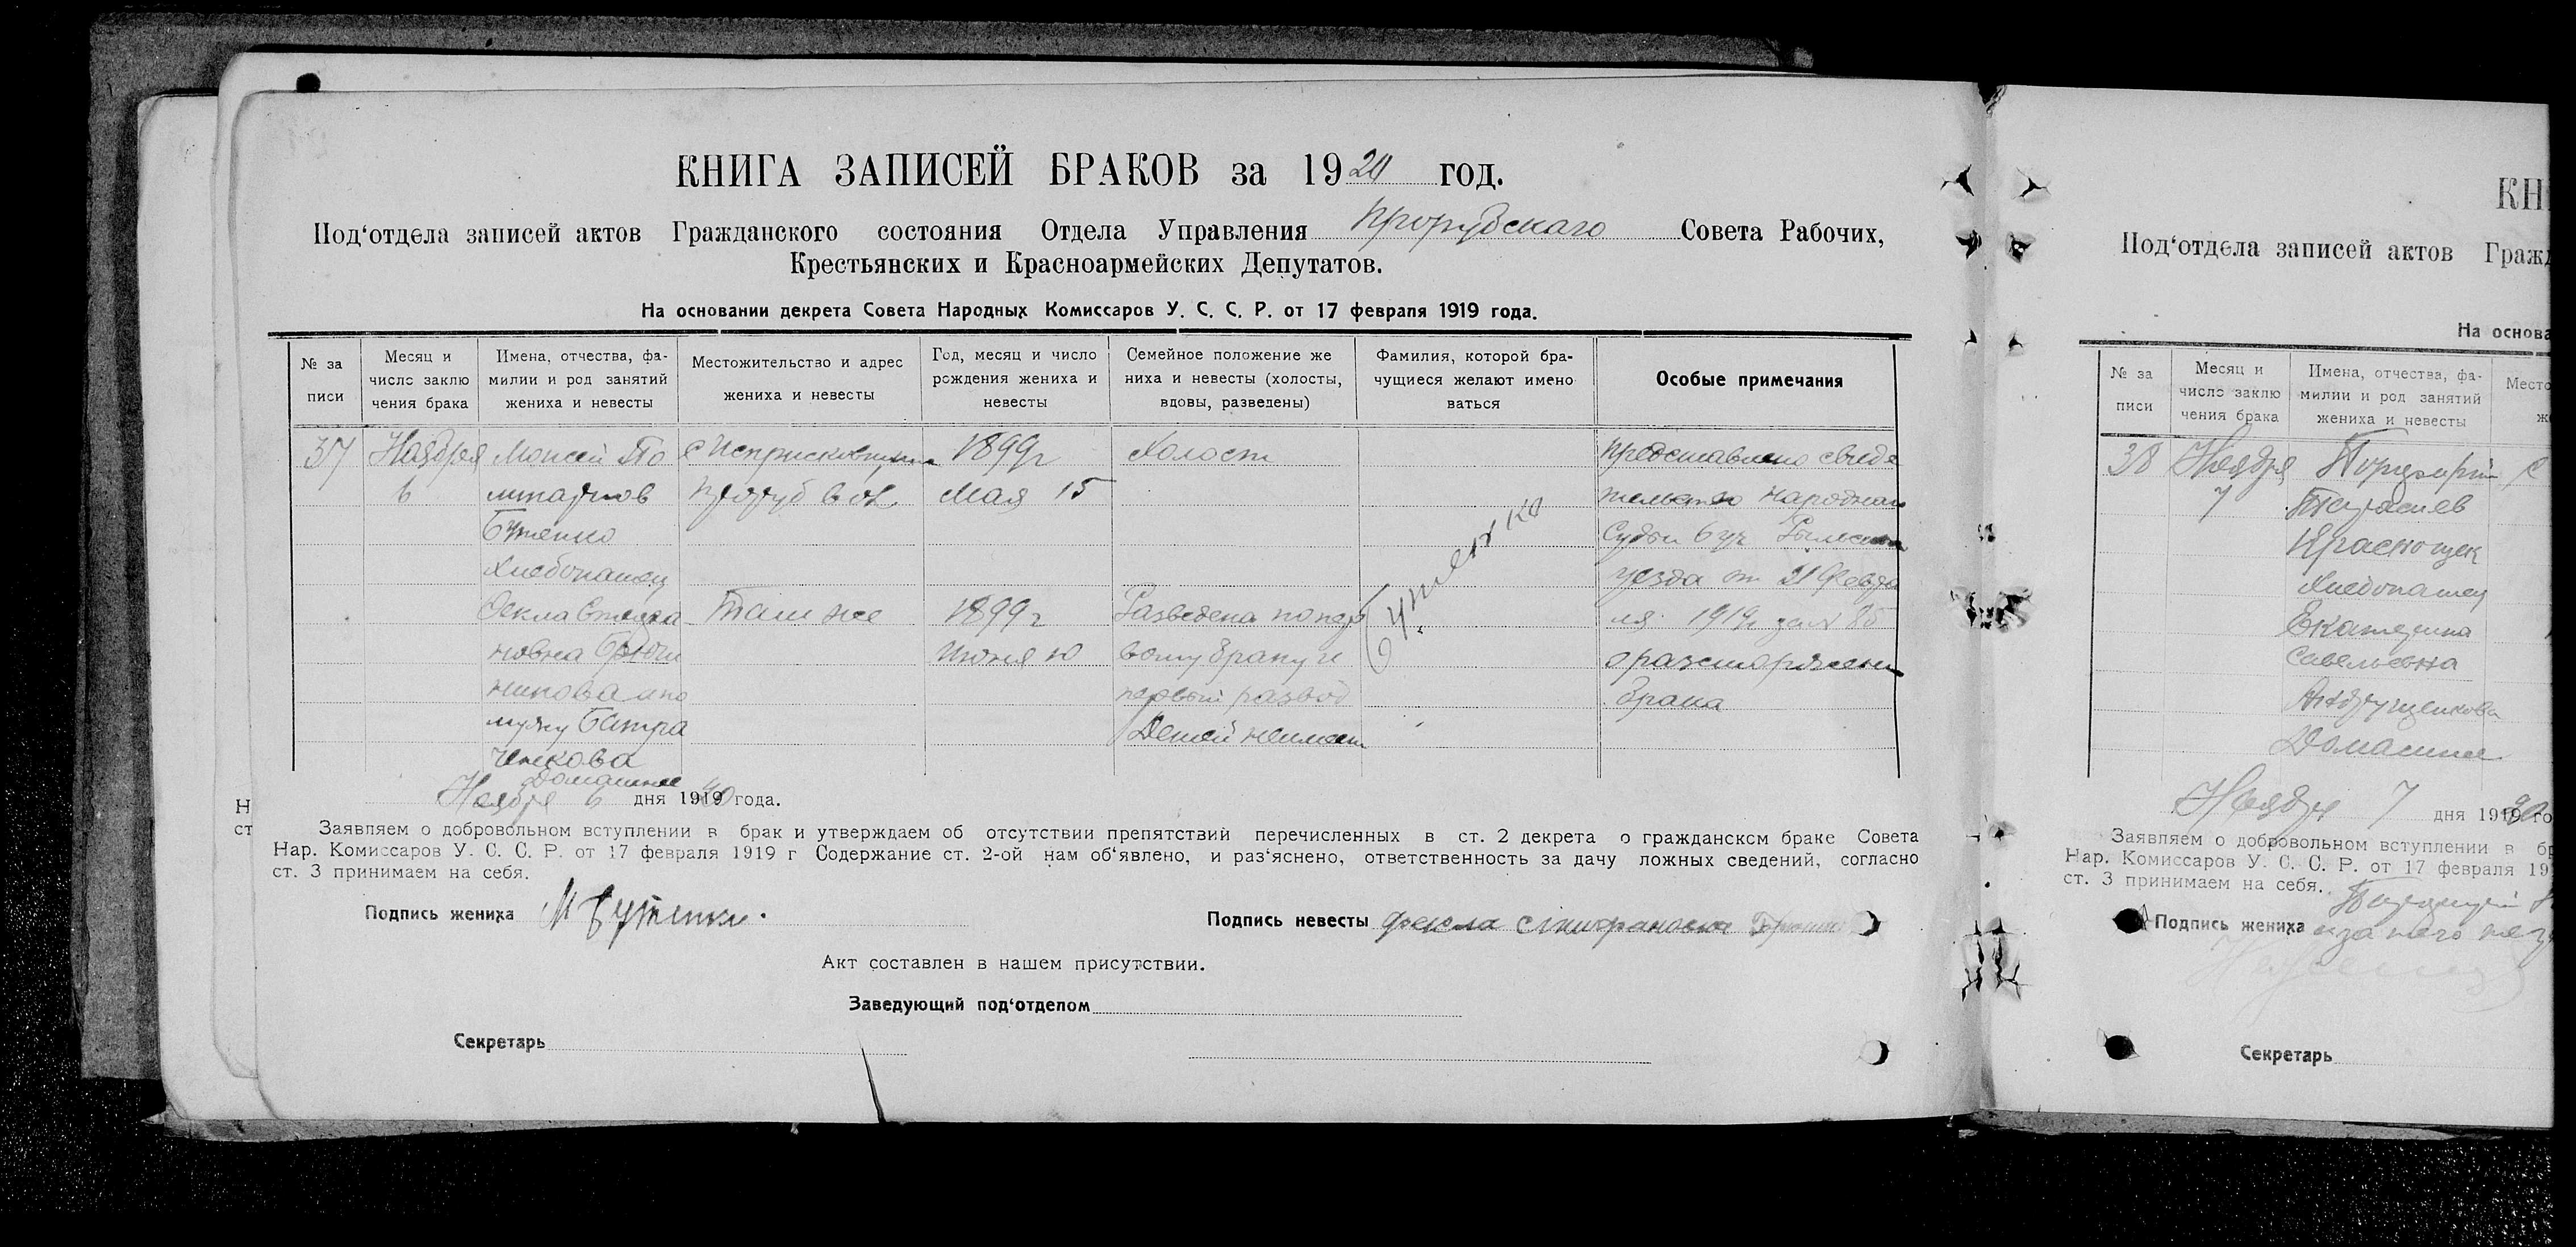 КНИГА ЗАПИСЕЙ БРАКОВ за 1920 год.
Под‘отдела записей актов Гражданского состояния Отдела Управления Прорубского Совета Рабочих,
Крестьянских и Красноармейских Депутатов.
На основании декрета Совета Народных Комиссаров У. С. С. Р. от 17 февраля 1919 года.
№ за писи
Месяц и число заклю чения брака
Имена, отчества, фа- милии и род занятий жениха и невесты
Местожительство и адрес жениха и невесты
Год, месяц и число рождения жениха и невесты
Семейное положение же ниха и невесты (холосты, вдовы, разведены)
Фамилия, которой бра- чущиеся желают имено ваться
Особые примечания
37
Ноября
6
Моисей По
Бутенко
Хлебопашец
с
Проруб вол
1899 г
Мая 15
Холост
Фекла
новна
никова ипо
мужу Батра
ченкова
Домашнее
Там же
1899 г
Июня 10
Разведена по пер
вому браку и
первый развод
Детей неимеет
Бутенко
Представлено свиде
тельство народнаго
Судьи 6 уч
уезда от 21 Февра
ля 1919 г за № 85
о расторжении
брака
Ноября 6 дня 1920 года.
Заявляем о добровольном вступлении в брак и утверждаем об отсутствии препятствий перечисленных в ст. 2 декрета о гражданском браке Совета
Нар. Комиссаров У. С. С. Р. от 17 февраля 1919 г Содержание ст. 2-ой нам об‘явлено, и раз‘яснено, ответственность за дачу ложных сведений, согласно
ст. 3 принимаем на себя.
Подпись жениха М Бутенко.
Подпись невесты Фекла
Акт составлен в нашем присутствии.
Заведующий под‘отделом
Секретарь
Н
ст
КН
Под‘отдела записей актов Гражд
На основа
№ за писи
Месяц и число заклю чения брака
Имена, отчества, фа- милии и род занятий жениха и невесты
Место
ж
38
Ноября
7
Тарасиев
Краснощек
Хлебопашец
Екатерина
Савельевна
Андрущенкова
Домашнее
с
Ноября 7 дня 1920 го
Заявляем о добровольном вступлении в бр
Нар. Комиссаров У. С. С. Р. от 17 февраля 19
ст. 3 принимаем на себя.
Подпись жениха а за него негр
Секретарь